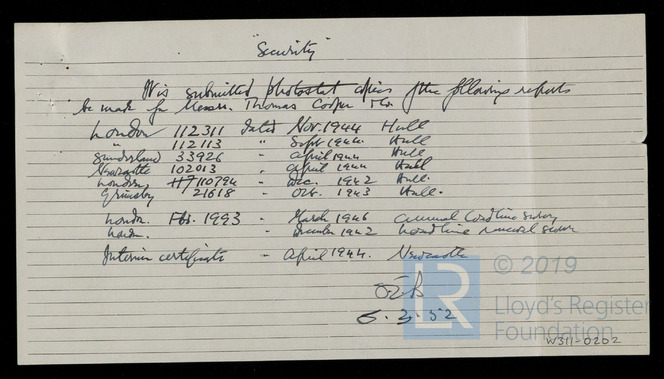 "Security"
It is submitted photostat copies of the following reports
be made for Messrs. Thomas Cooper & Co.
London 112311 dated Nov. 1944 Hull
" 112113 " Sept 1944 Hull
Sunderland 33926 - April 1944 Hull
Newcastle 102013 " April 1944 Hull
London 110794 - Dec. 1942 Hull.
Grimsby 21618 - Oct. 1943 Hull.
London. 1993 - March 1946 annual loadline survey
- December 1942 Loadline renewal survey
Interim certificate - April 1944. Newcastle
6.3.52
LR
© 2019
Lloyd's Register
Foundation
W311-0202